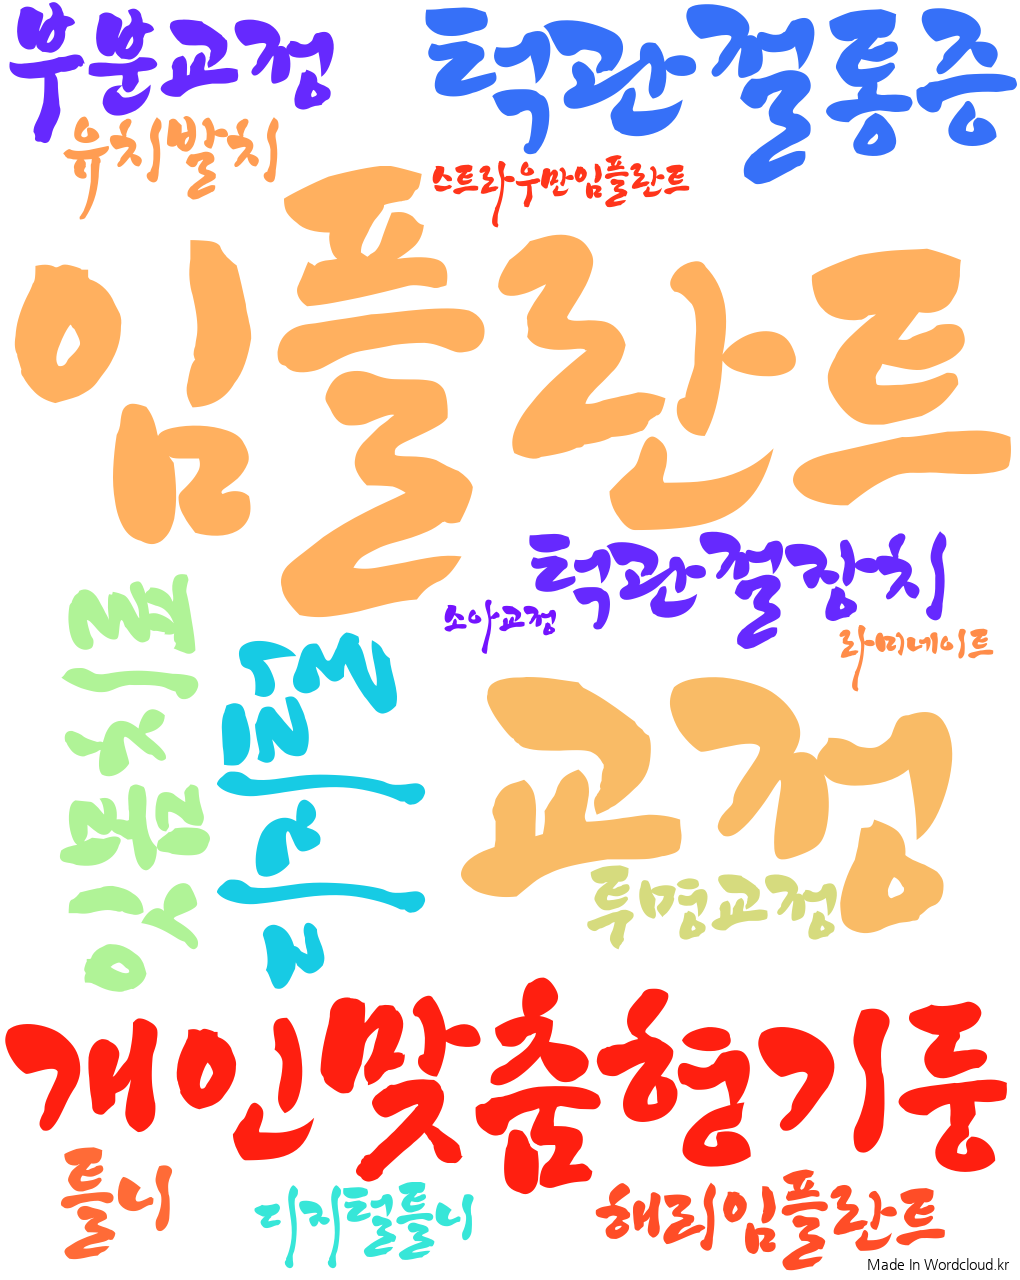 부분교정
턱관절통증
유치발치
스트라우만임플란트
임플란트
턱관절장치
소아교정
라미네이트
잇몸치료
디지털
교정
투명교정
개인맞춤형기둥
틀니
디지털틀니
해리임플란트
Made In Wordcloud.kr